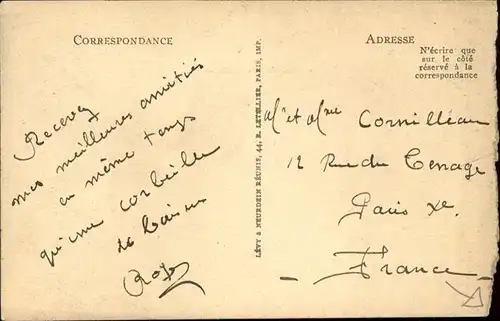 CORRESPONDANCE
Recevez
mes meilleures amitiés
en même temps
qu'une corbeille
de baisers
LÉVY & NEURDEIN RÉUNIS, 44, R. LETELLIER, PARIS, IMP.
ADRESSE
N'écrire que
sur le côté
réservé à la
correspondance
Mr et Mme Cornilleau
12 Rue du Tenage
Paris Xe.
- France -